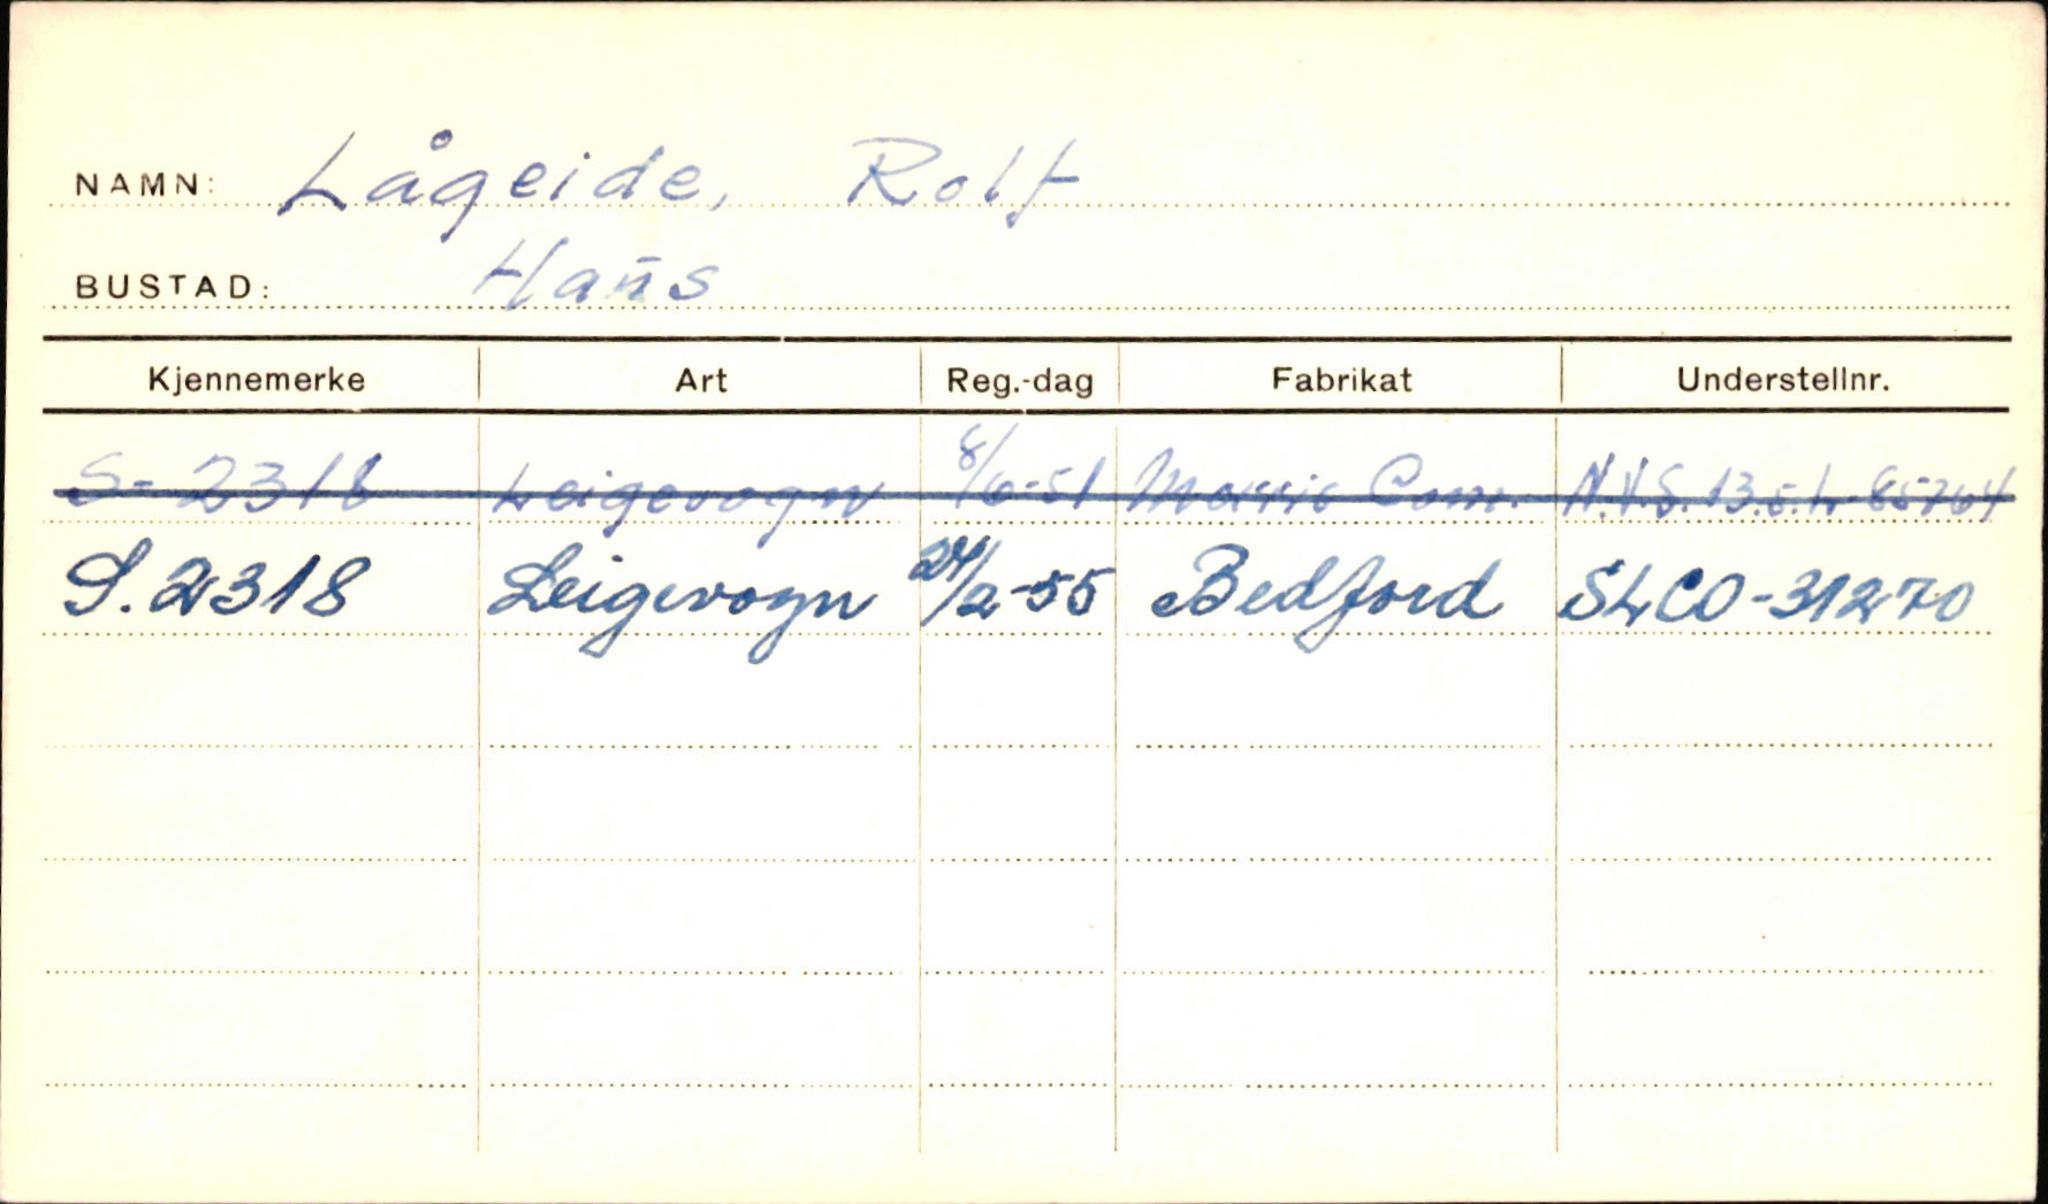 NAMN: Lågeide, Rolf
BUSTAD: Hañs
Kjennemerke Art Reg.-dag Fabrikat Understellnr.
S- 2318 Leigevogn 8/6-51 Morris Com. N.V.S. 13.5.L 85764
S. 2318 Leigevogn 24/2-55 Bedford SLCO-31270